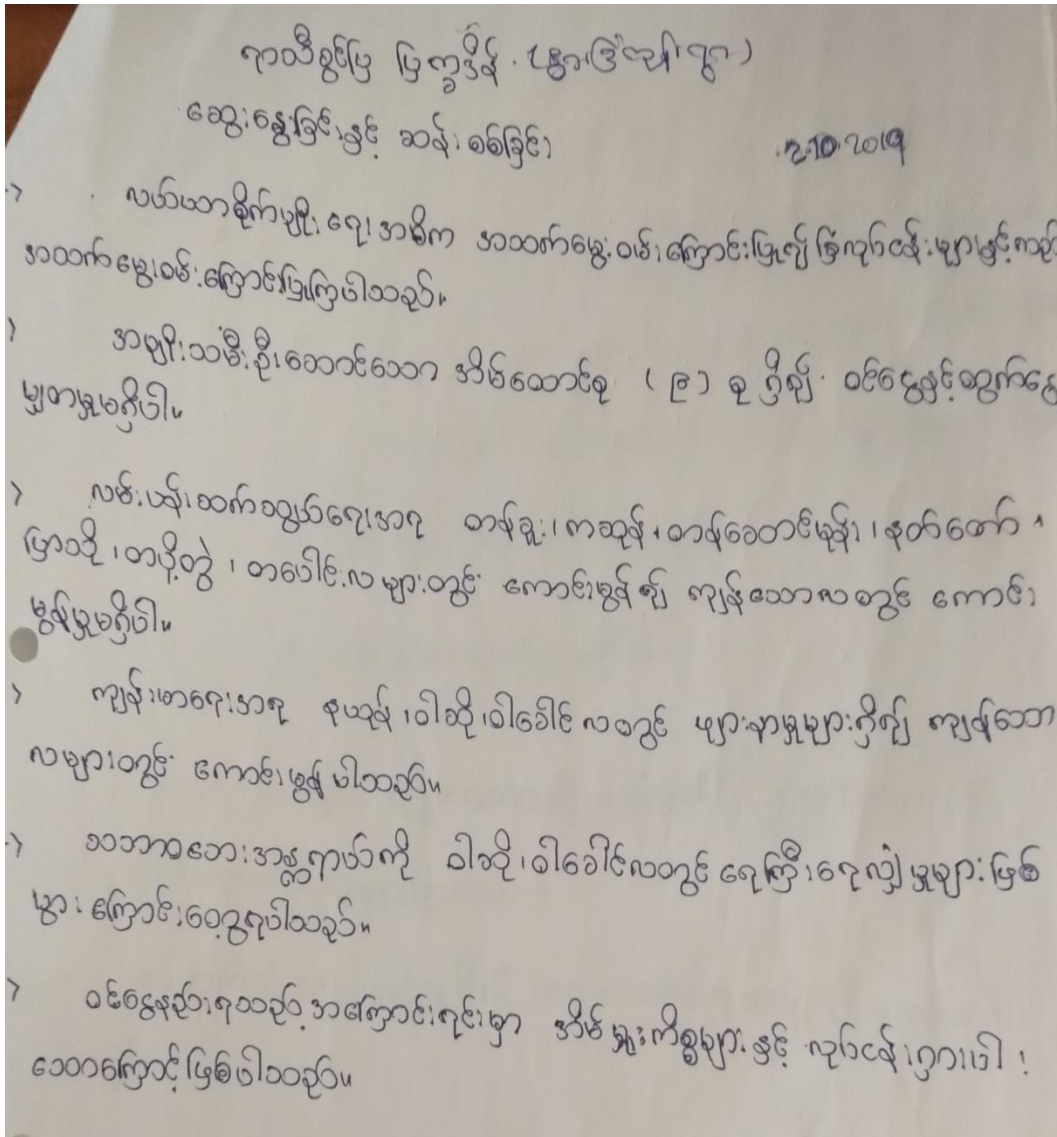 ရာသီခွင်ပြ ပြက္ခဒိန် (နွားခြံညီရွာ)
ဆွေးနွေးခြင်းနှင့် ဆန်းစစ်ခြင်း 2.10.2019
→ လယ်ယာစိုက်မျိုးရေးအဓိက အသက်မွေးဝမ်းကြောင်းပြု၍ ခြံလုပ်ငန်းများနှင့်လည်း
အသက်မွေးဝမ်းကြောင်းပြုကြပါသည်။
> အမျိုးသမီးဦးဆောင်သော အိမ်ထောင်စု (၉) စု ရှိ၍ ဝင်ငွေနှင့်ထွက်ငွေ
မျှတမှုမရှိပါ။
> လမ်းပန်းဆက်သွယ်ရေးအရ တန်ခူး၊ ကဆုန်၊ တန်ဆောင်မုန်း၊ နတ်တော်၊
ပြာသို၊ တပို့တွဲ၊ တပေါင်းလများတွင် ကောင်းမွန်၍ ကျန်သောလတွင် ကောင်း
မွန်မှုမရှိပါ။
> ကျန်းမာရေးအရ နယုန်၊ ဝါဆို၊ ဝါခေါင်လတွင် ဖျားနာမှုများရှိ၍ ကျန်သော
လများတွင် ကောင်းမွန်ပါသည်။
→ သဘာဝဘေးအန္တရာယ်ကို ဝါဆို၊ ဝါခေါင်လတွင် ရေကြီးရေလျှံမှုများဖြစ်
ပွားကြောင်းတွေ့ရပါသည်။
> ဝင်ငွေနည်းရသည့်အကြောင်းရင်းမှာ အိမ်မှုကိစ္စများနှင့် လုပ်ငန်းရှားပါး
သောကြောင့်ဖြစ်ပါသည်။